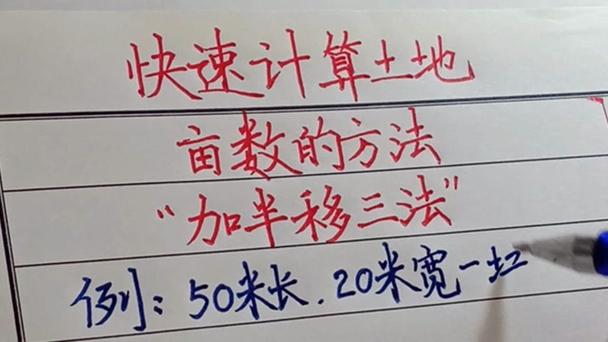 快速计算土地
亩数的方法
“加半移三法”
例：50米长.20米宽一